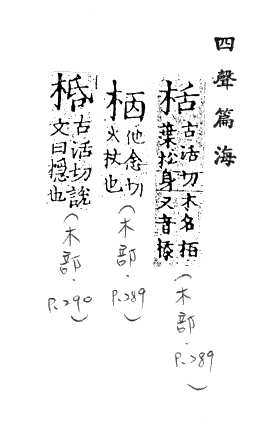 四聲篇海
栝古活切木名栢
葉松身又音㮇
(木部.P.289)
㭠他念切
火杖也
(木部.P.289)
𣑎古活切說
文曰檃也
(木部.P.290)